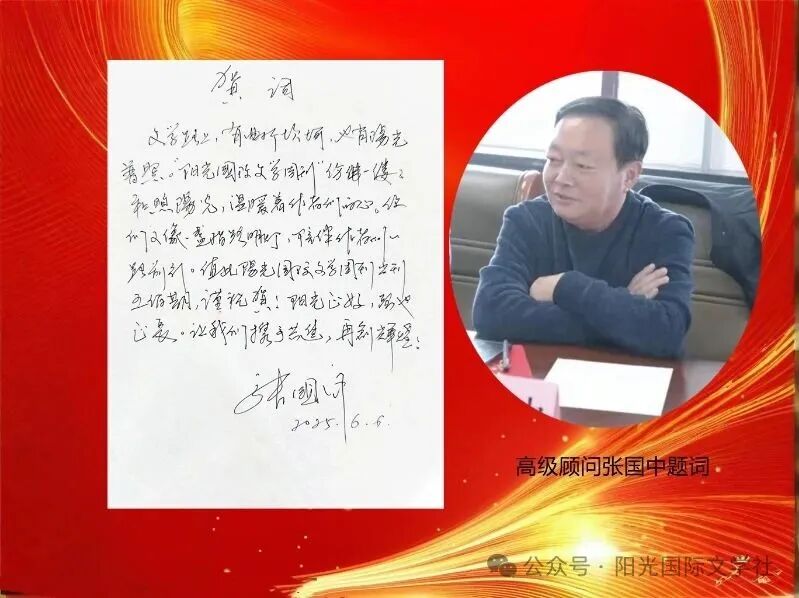 贺词
文学路上，有曲折坎坷，也有陽光
普照。“阳光国际文学周刊”仿佛一缕缕
和煦陽光，温暖着作者们的心。你
们又像一盏指路明灯，陪伴作者们一
路前行。值此陽光国际文学周刊出刊
五佰期，谨祝贺！阳光正好，路也
正长。让我们携手共进，再创辉煌！
张国中
2025.6.6.
高级顾问张国中题词
公众号·阳光国际文学社